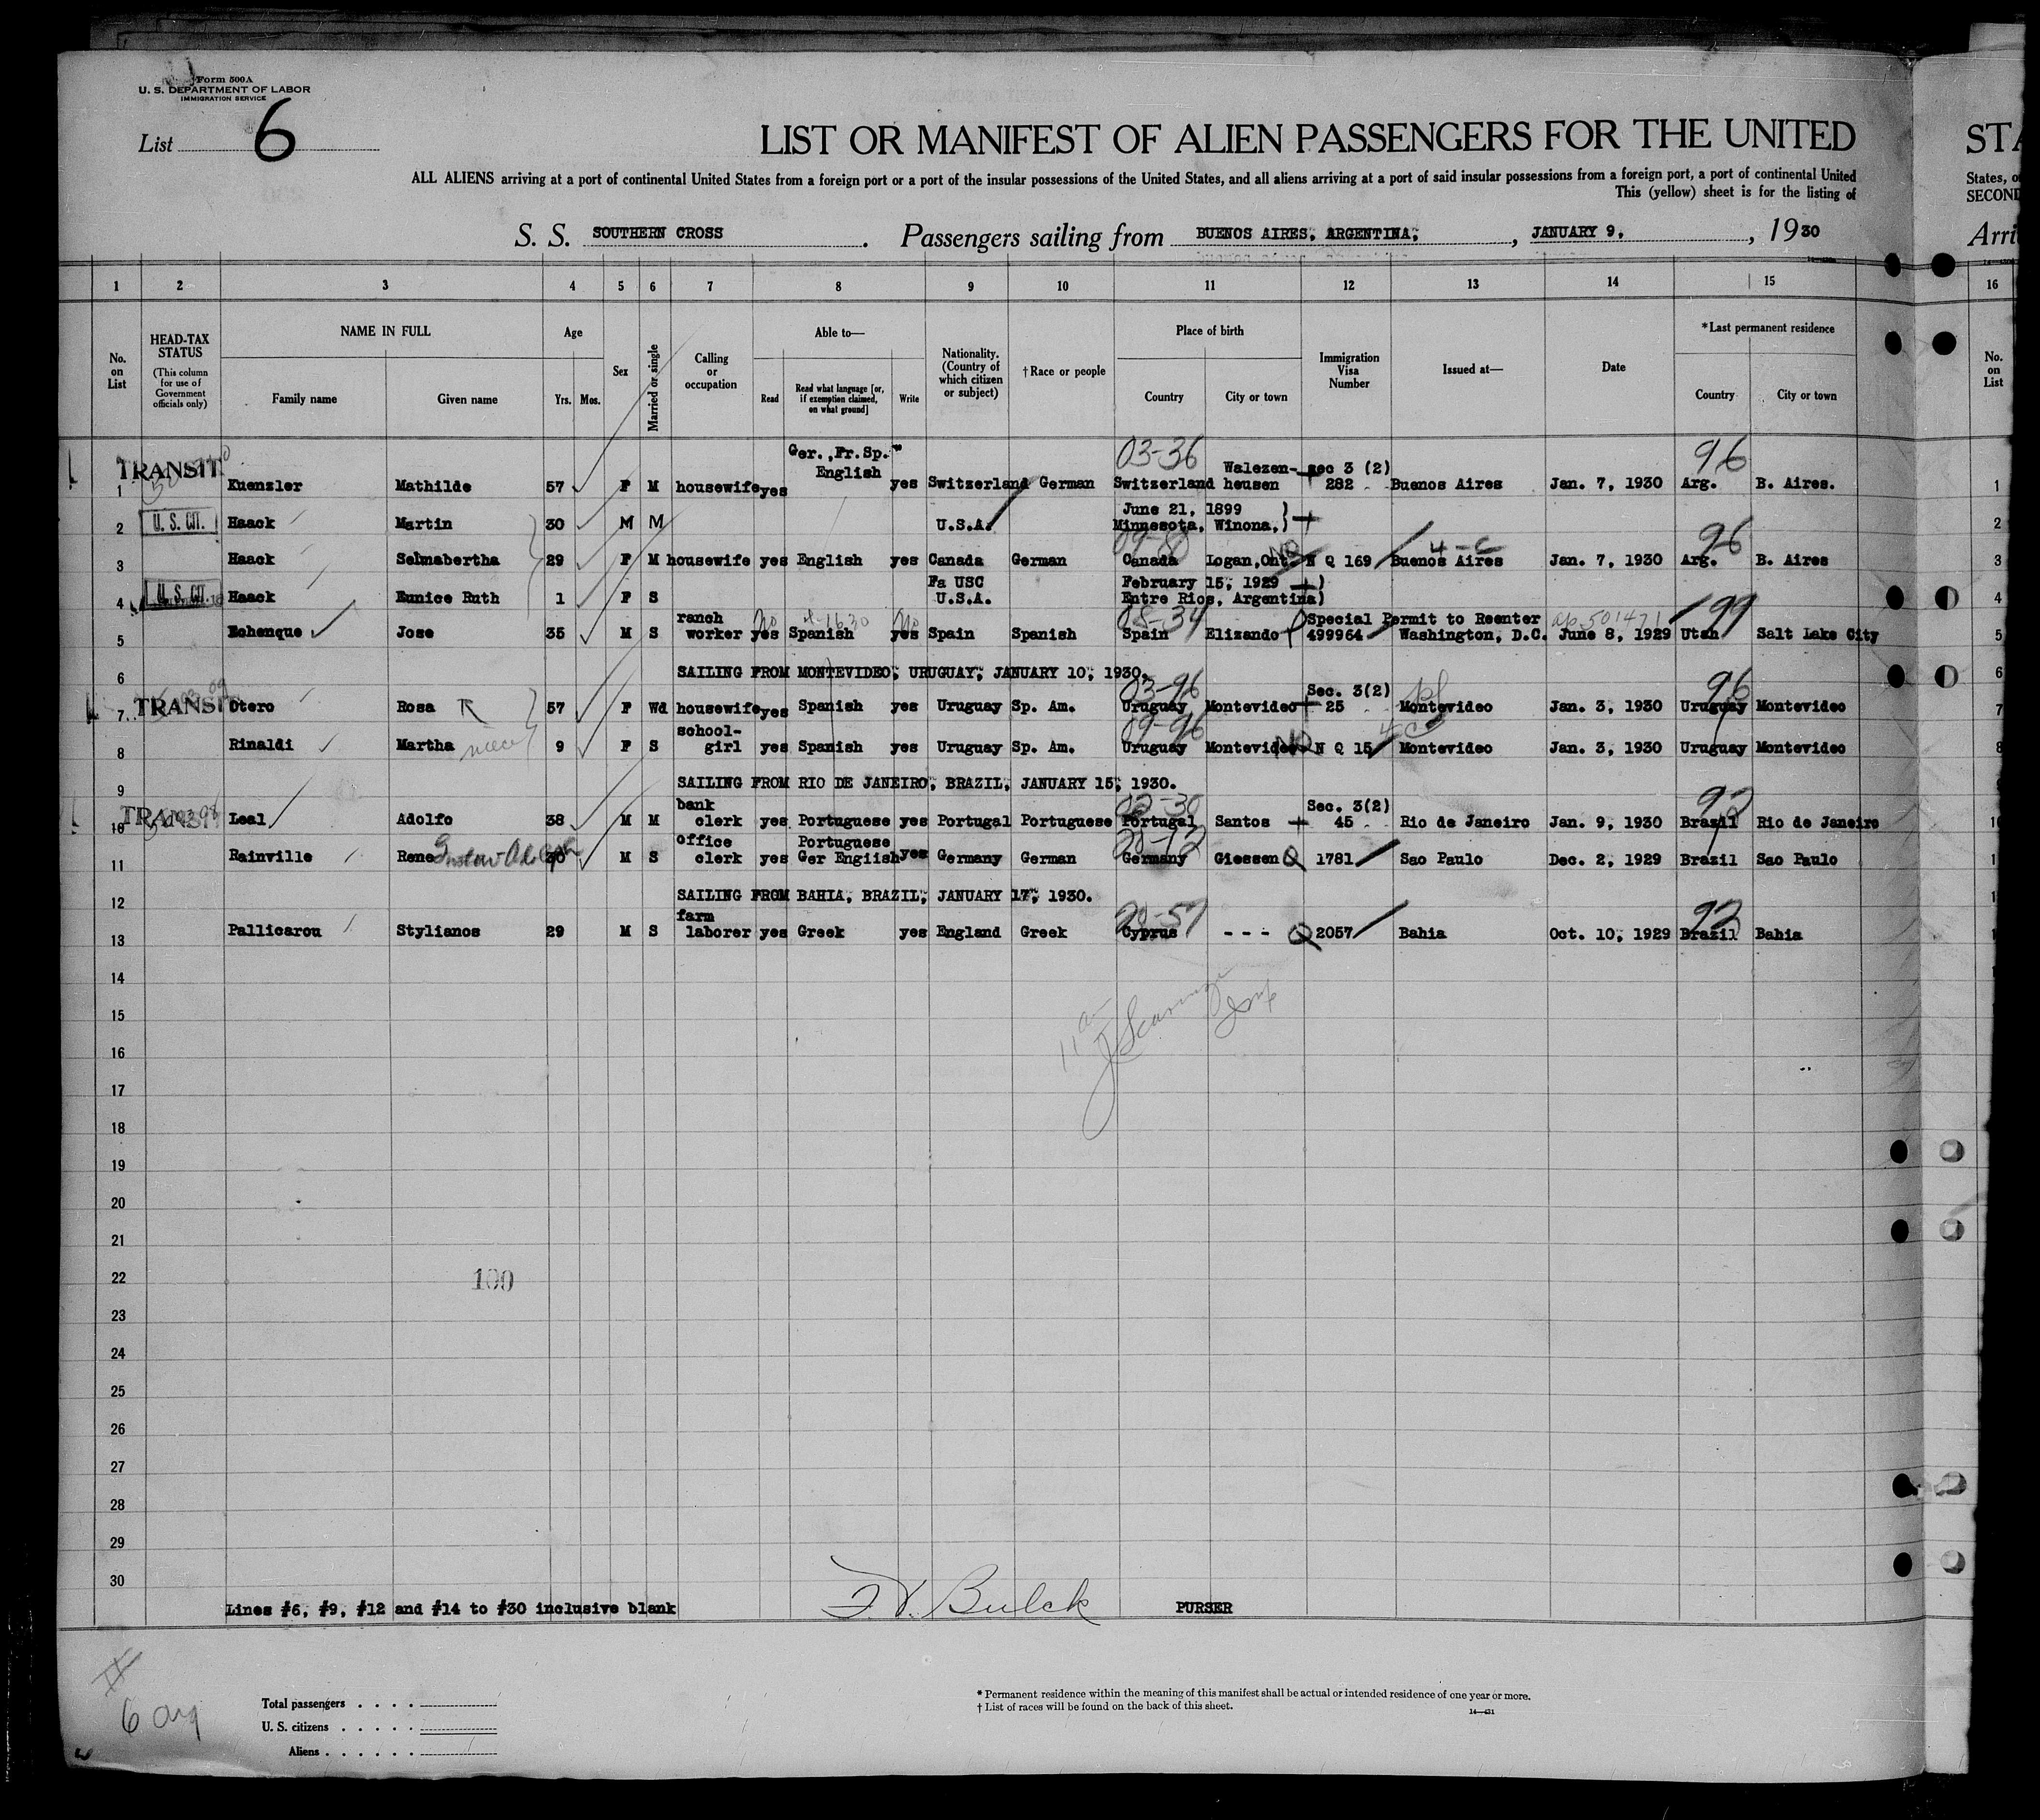 Form 500A
U. S. DEPARTMENT OF LABOR
IMMIGRATION SERVICE
List 6
LIST OR MANIFEST OF ALIEN PASSENGERS FOR THE UNITED
STA
ALL ALIENS arriving at a port of continental United States from a foreign port or a port of the insular possessions of the United States, and all aliens arriving at a port of said insular possessions from a foreign port, a port of continental United
States, o
This (yellow) sheet is for the listing of
SECOND
S. S. SOUTHERN CROSS. Passengers sailing from BUENOS AIRES, ARGENTINA, JANUARY 9, 1930
Arri
1 2 3 4 5 6 7 8 9 10 11 12 13 14 15 16
No. on List
HEAD-TAX STATUS (This column for use of Government officials only)
NAME IN FULL Family name Given name
Age Yrs. Mos.
Sex
Married or single
Calling or occupation
Able to— Read Read what language [or, if exemption claimed, on what ground] Write
Nationality. (Country of which citizen or subject)
†Race or people
Place of birth Country City or town
Immigration Visa Number
Issued at—
Date
*Last permanent residence Country City or town
No. on List
Ger.,Fr.Sp. 03-36 96
TRANSIT English Walezen- sec 3 (2)
1 Kuenzler Mathilde 57 F M housewife yes yes Switzerland German Switzerland hausen 282 Buenos Aires Jan. 7, 1930 Arg. B. Aires. 1
June 21, 1899
2 U. S. CIT. Haack Martin 30 M M U.S.A. Minnesota, Winona,) 2
96
3 Haack Selmabertha 29 F M housewife yes English yes Canada German Canada Logan,Ont N Q 169 4-C Buenos Aires Jan. 7, 1930 Arg. B. Aires 3
Fa USC February 15, 1929 )
4 U. S. CIT. Haack Eunice Ruth 1 F S U.S.A. Entre Rios, Argentina) 4
ranch no no 08-34 Special Permit to Reenter 99
5 Echenque Jose 35 M S worker yes Spanish yes Spain Spanish Spain Elizando 499964 Washington, D.C. June 8, 1929 Utah Salt Lake City 5
6 SAILING FROM MONTEVIDEO, URUGUAY, JANUARY 10, 1930. 6
03-96 Sec. 3(2) 96
7 TRANSIT Otero Rosa 57 F Wd housewife yes Spanish yes Uruguay Sp. Am. Uruguay Montevideo 25 Montevideo Jan. 3, 1930 Uruguay Montevideo 7
school- 09-96
8 Rinaldi Martha niece 9 F S girl yes Spanish yes Uruguay Sp. Am. Uruguay Montevideo N Q 15 Montevideo Jan. 3, 1930 Uruguay Montevideo 8
9 SAILING FROM RIO DE JANEIRO, BRAZIL, JANUARY 15, 1930.
bank Sec. 3(2) 92
10 Leal Adolfo 38 M M clerk yes Portuguese yes Portugal Portuguese Portugal Santos 45 Rio de Janeiro Jan. 9, 1930 Brazil Rio de Janeiro
office Portuguese
11 Rainville Rene M S clerk yes Ger Engiish yes Germany German Germany Giessen Q 1781 Sao Paulo Dec. 2, 1929 Brazil Sao Paulo
12 SAILING FROM BAHIA, BRAZIL, JANUARY 17, 1930.
farm 92
13 Pallicarou Stylianos 29 M S laborer yes Greek yes England Greek Cyprus - - - Q 2057 Bahia Oct. 10, 1929 Brazil Bahia
14
15
16
17
18
19
20
21
22
100
23
24
25
26
27
28
29
30
Lines #6, #9, #12 and #14 to #30 inclusive blank Bulck PURSER
6
Total passengers
U. S. citizens
Aliens
* Permanent residence within the meaning of this manifest shall be actual or intended residence of one year or more.
† List of races will be found on the back of this sheet.
14—431